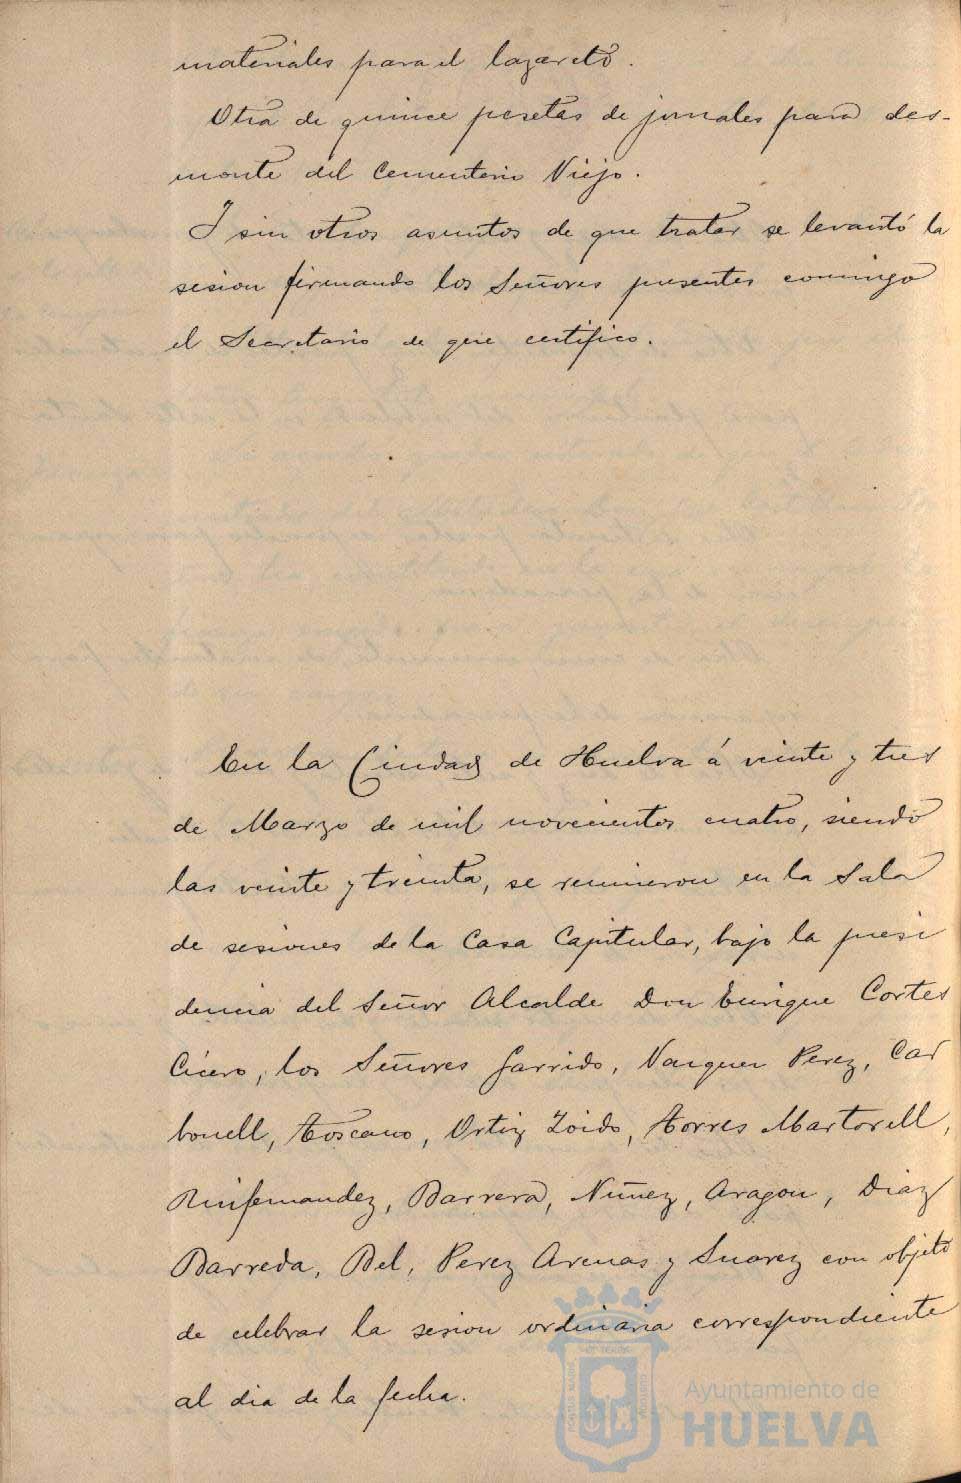 materiales para el lazareto.
Otra de quince pesetas de jornales para des-
monte del Cementerio Viejo.
I sin otros asuntos de que tratar se levantó la
sesion firmando los Señores presentes conmigo
el Secretario de que certifico.
En la Ciudad de Huelva á veinte y tres
de Marzo de mil novecientos cuatro, siendo
las veinte y treinta, se reunieron en la Sala
de sesiones de la Casa Capitular, bajo la presi
dencia del Señor Alcalde Don Enrique Cortes
Cícero, los Señores Garrido, Vazquez Perez, Car
bonell, Toscano, Ortiz Zoido, Torres Martorell,
Ruifernandez, Barrera, Nuñez, Aragon, Diaz
Barreda, Bel, Perez Arenas y Suarez con objeto
de celebrar la sesion ordinaria correspondiente
al dia de la fecha.
Ayuntamiento de
HUELVA